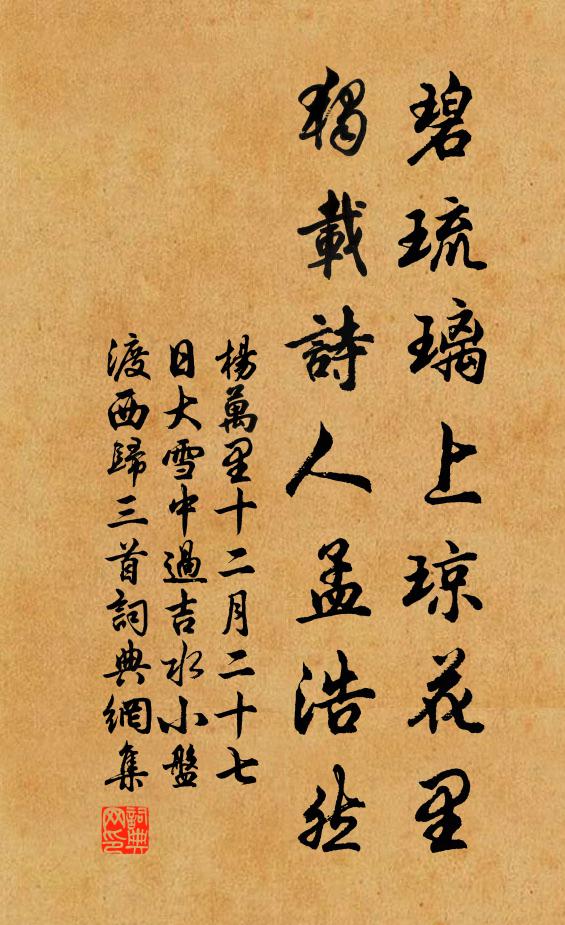 碧琉璃上琼花里
独載詩人孟浩然
楊萬里十二月二十七
日大雪中過吉水小盤
渡西歸三首詞典網集
詞典网印